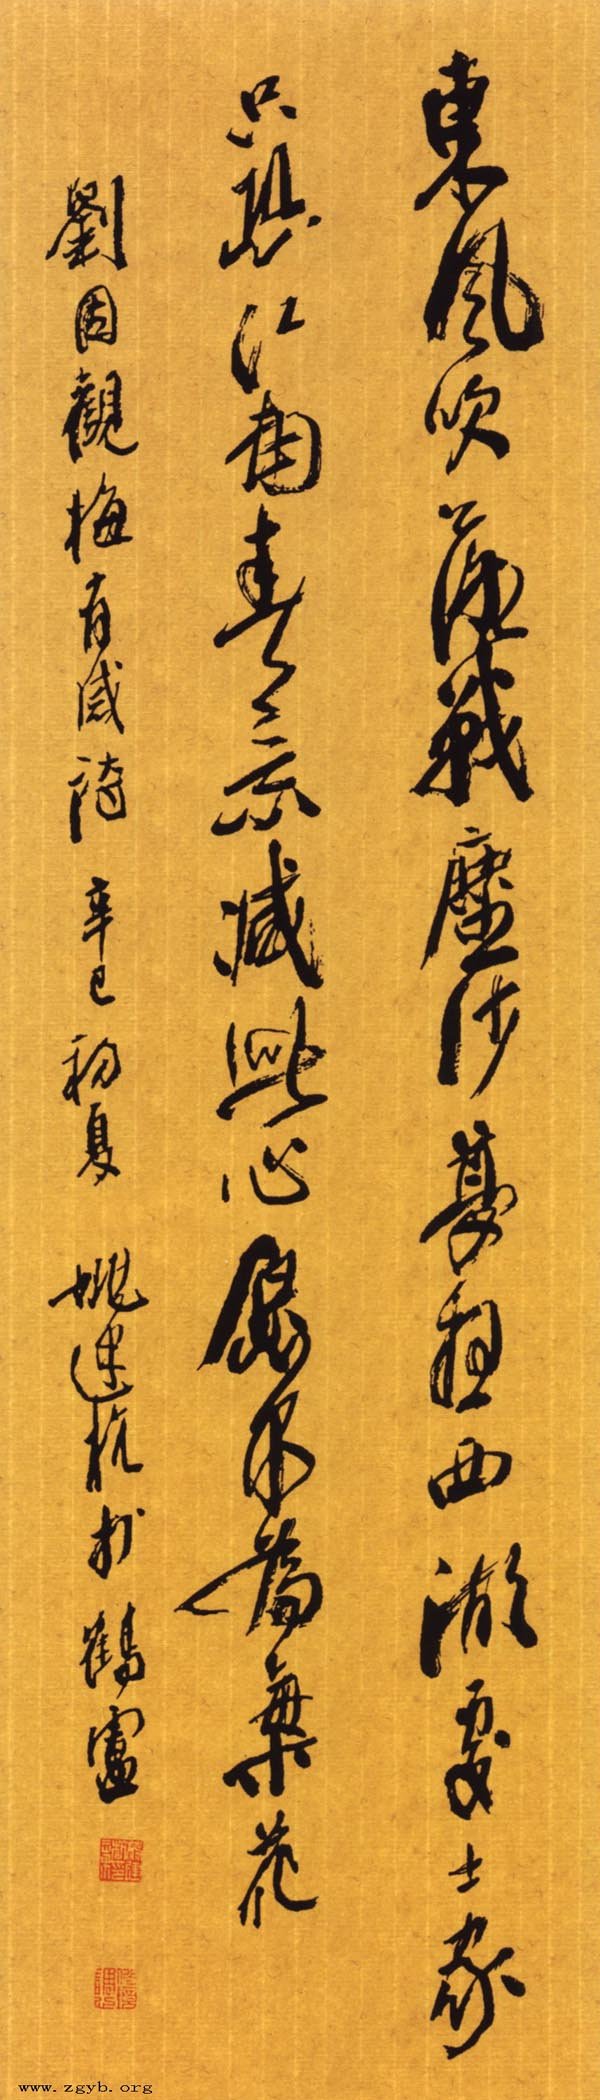 東風吹落戰塵沙夢想西湖處士家
只恐江南春景減此心原不為梅花
劉因觀梅有感詩 辛巳初夏 姚建杭於鶴廬
www.zgyb.org